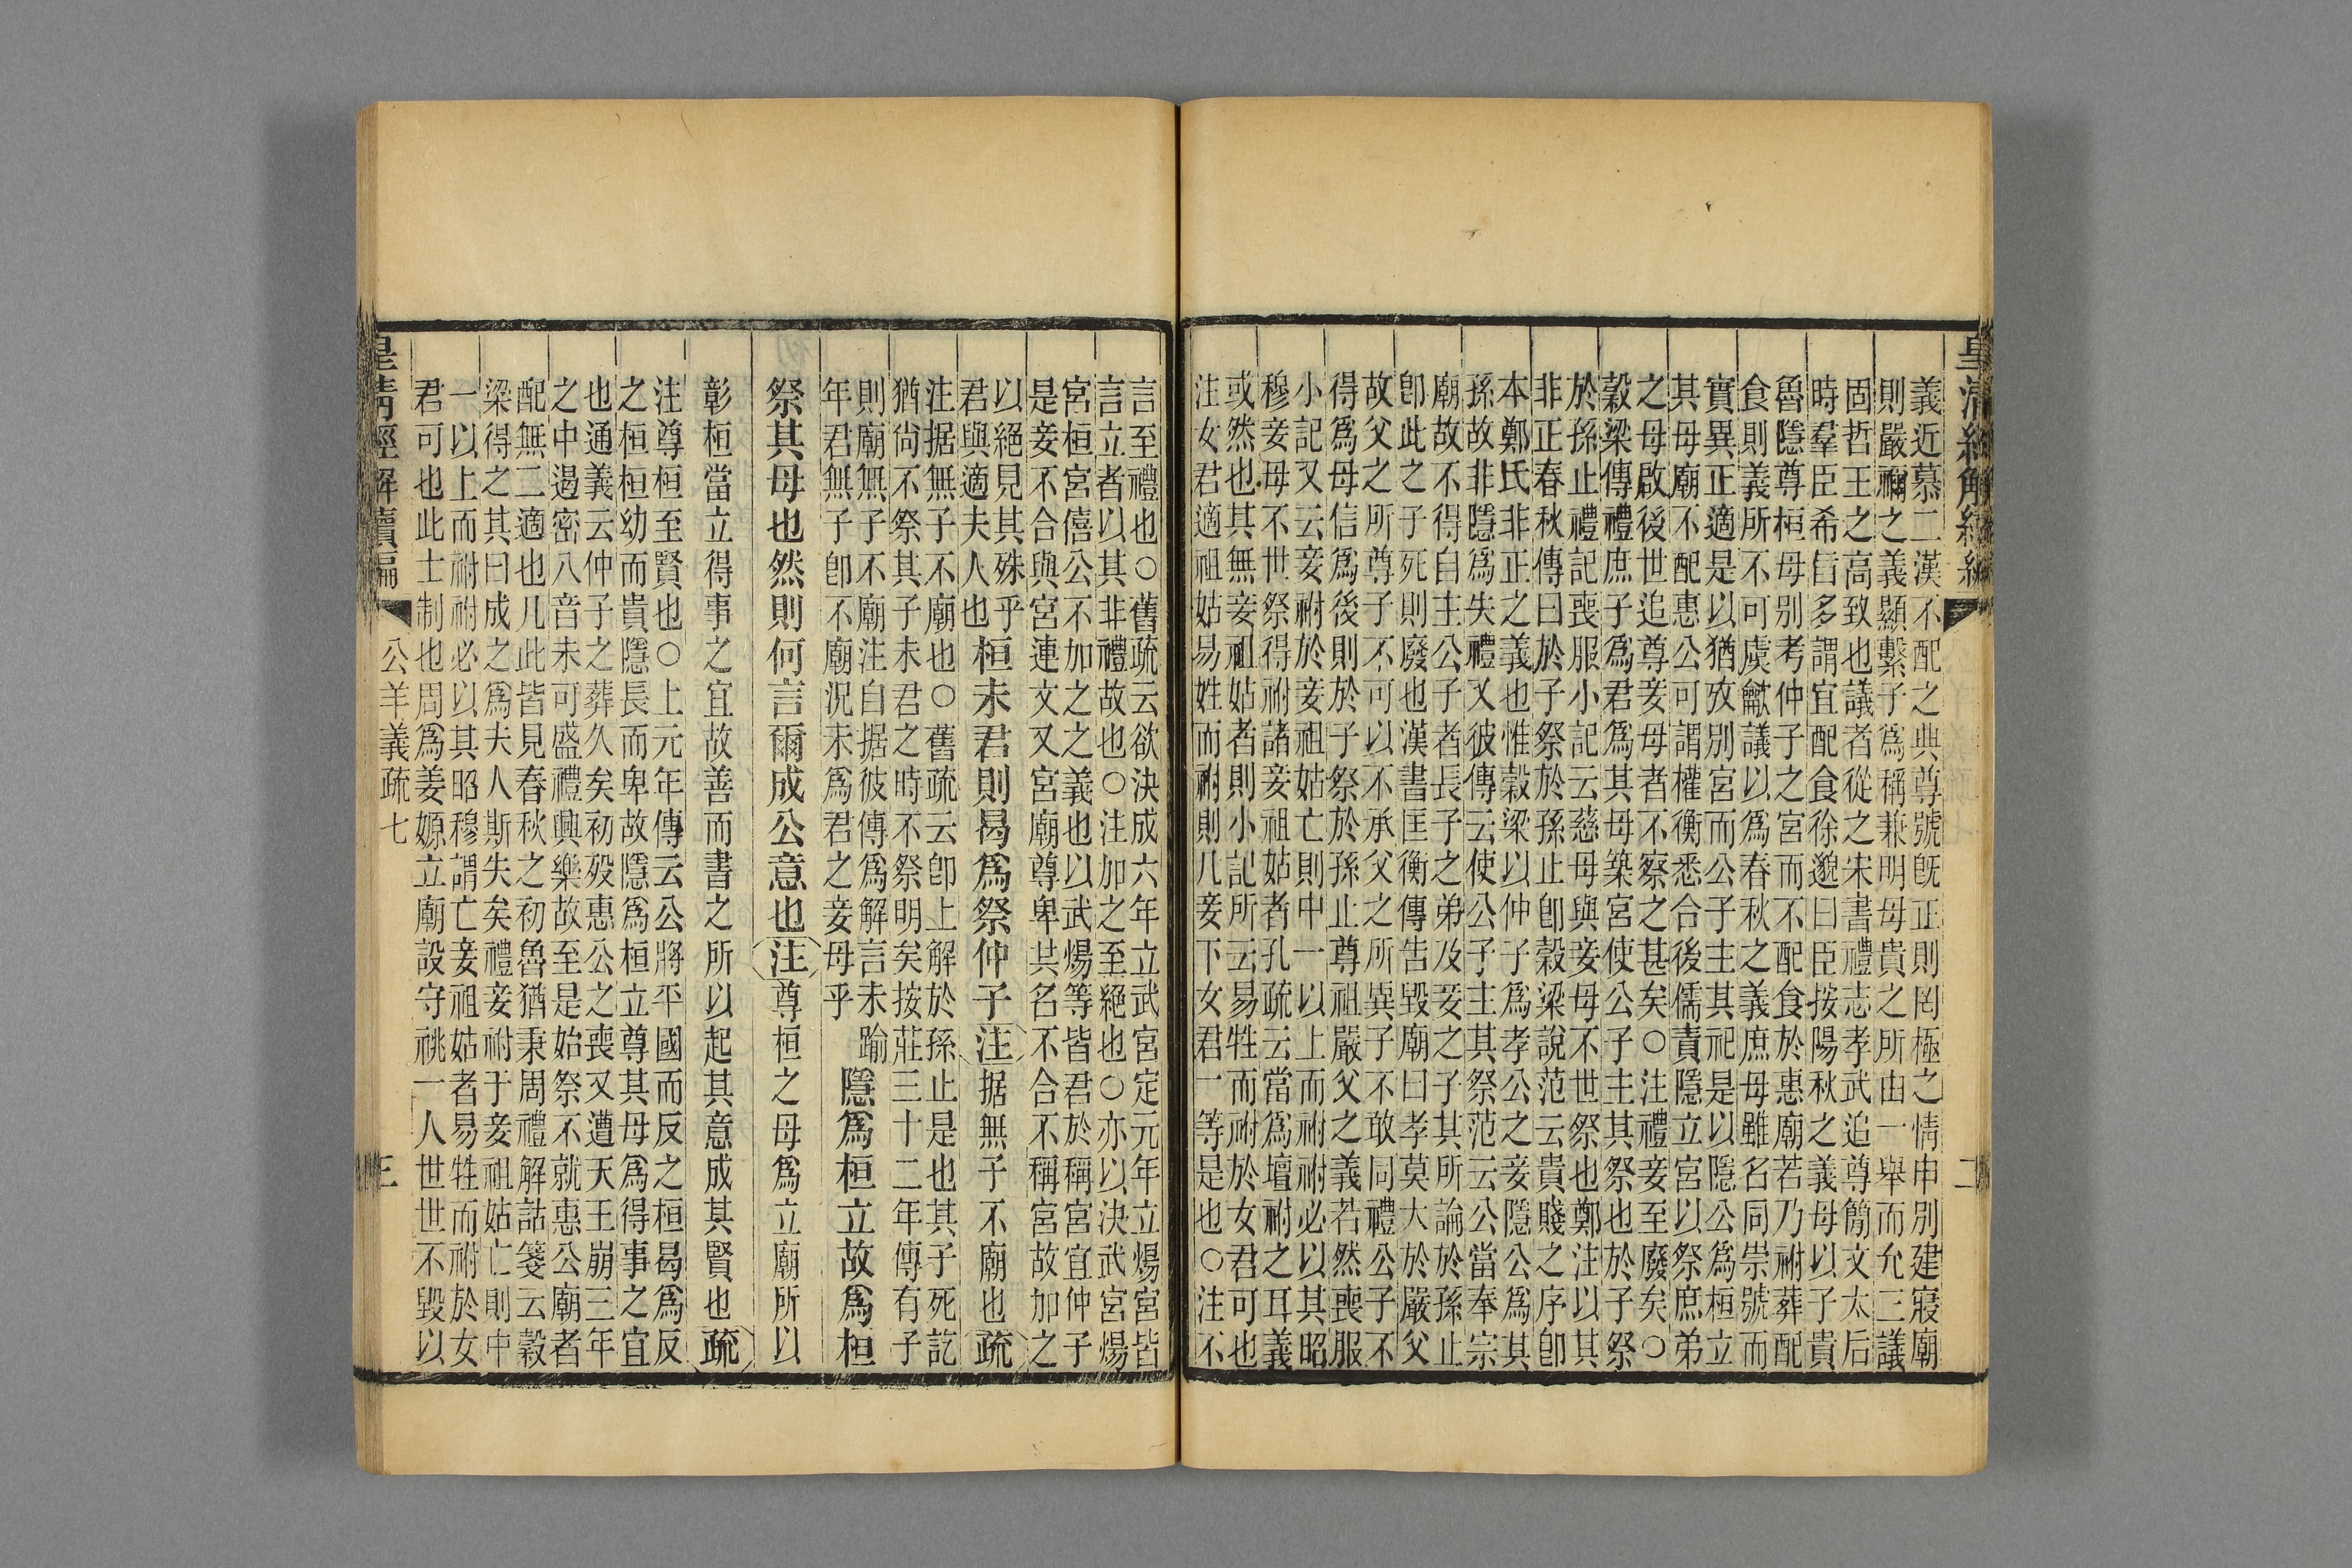 皇清經解續編
二
義近慕二漢不配之典尊號旣正則罔極之情申別建寢廟
則嚴禰之義顯繫子爲稱兼明母貴之所由一舉而允三議
固哲王之高致也議者從之宋書禮志孝武追尊簡文太后
時羣臣希旨多謂宜配食徐邈曰臣按陽秋之義母以子貴
魯隱尊桓母別考仲子之宮而不配食於惠廟若乃祔葬配
食則義所不可虞龢議以爲春秋之義庶母雖名同崇號而
實異正適是以猶攷別宮而公子主其祀是以隱公爲桓立
其母廟不配惠公可謂權衡悉合後儒責隱立宮以祭庶弟
之母啟後世追尊妾母者不察之甚矣○注禮妾至廢矣○
穀梁傳禮庶子爲君爲其母築宮使公子主其祭也於子祭
於孫止禮記喪服小記云慈母與妾母不世祭也鄭注以其
非正春秋傳曰於子祭於孫止卽穀梁說范云貴賤之序卽
本鄭氏非正之義也惟穀梁以仲子爲孝公之妾隱公爲其
孫故非隱爲失禮又彼傳云使公子主其祭范云公當奉宗
廟故不得自主公子者長子之弟及妾之子其所論於孫止
卽此之子死則廢也漢書匡衡傳告毀廟曰孝莫大於嚴父
故父之所尊子不可以不承父之所異子不敢同禮公子不
得爲母信爲後則於子祭於孫止尊祖嚴父之義若然喪服
小記又云妾祔於妾祖姑亡則中一以上而祔祔必以其昭
穆妾母不世祭得祔諸妾祖姑者孔疏云當爲壇祔之耳義
或然也其無妾祖姑者則小記所云易牲而祔於女君可也
注女君適祖姑易姓而祔則凡妾下女君一等是也○注不
言至禮也○舊疏云欲決成六年立武宮定元年立煬宮皆
言立者以其非禮故也○注加之至絕也○亦以決武宮煬
宮桓宮僖公不加之之義也以武煬等皆君於稱宮宜仲子
是妾不合與宮連文又宮廟尊卑共名不合不稱宮故加之
以絕見其殊乎
君與適夫人也
桓未君則曷爲祭仲子注据無子不廟也疏
注据無子不廟也○舊疏云卽上解於孫止是也其子死訖
猶尙不祭其子未君之時不祭明矣按莊三十二年傳有子
則廟無子不廟注自据彼傳爲解言未踰
年君無子卽不廟況未爲君之妾母乎
隱爲桓立故爲桓
祭其母也然則何言爾成公意也注尊桓之母爲立廟所以
彰桓當立得事之宜故善而書之所以起其意成其賢也疏
注尊桓至賢也○上元年傳云公將平國而反之桓曷爲反
之桓桓幼而貴隱長而卑故隱爲桓立尊其母爲得事之宜
也通義云仲子之葬久矣初歿惠公之喪又遭天王崩三年
之中遏密八音未可盛禮興樂故至是始祭不就惠公廟者
配無二適也凡此皆見春秋之初魯猶秉周禮解詁箋云穀
梁得之其曰成之爲夫人斯失矣禮妾祔于妾祖姑亡則中
一以上而祔祔必以其昭穆謂亡妾祖姑者易牲而祔於女
君可也此士制也周爲姜嫄立廟設守祧一人世世不毀以
皇清經解續編
公羊義疏七
三